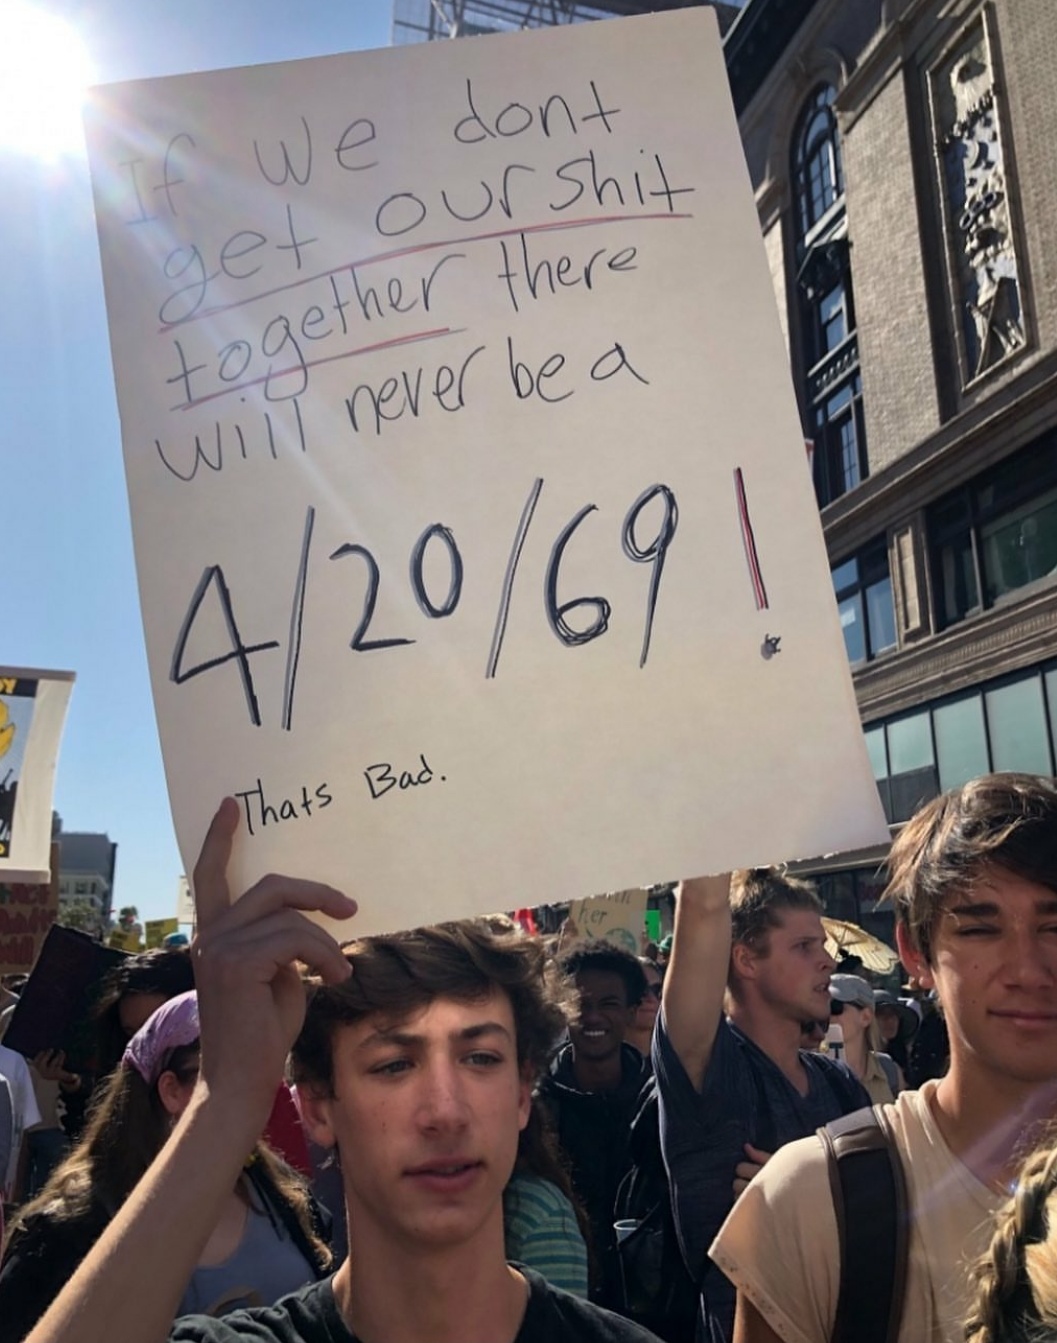 If we dont
get our shit
together there
will never be a
4/20/69!
Thats Bad.
her